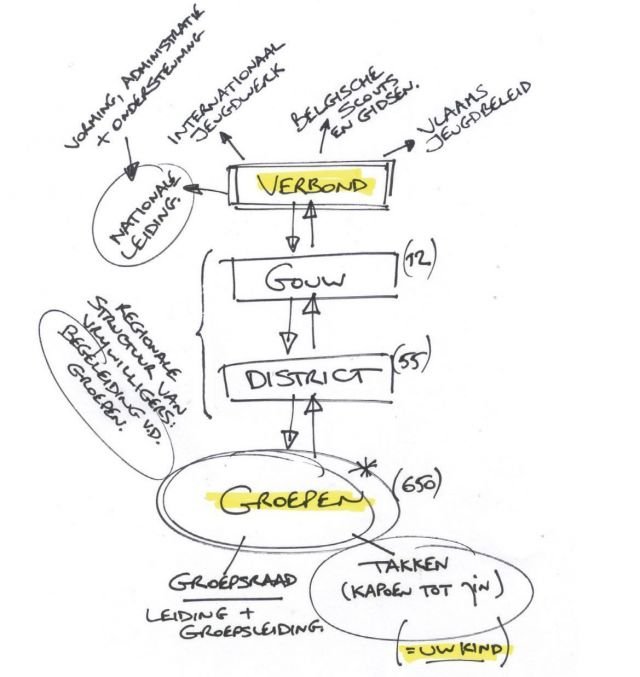 VORMING, ADMINISTRATIE
+ ONDERSTEUNING
INTERNATIONAAL
JEUGDWERK
BELGISCHE
SCOUTS
EN GIDSEN.
VLAAMS
JEUGDBELEID
VERBOND
NATIONALE
LEIDING.
GOUW
(12)
REGIONALE
STRUCTUUR VAN
VRIJWILLIGERS:
BEGELEIDING V.D.
GROEPEN.
DISTRICT
(55)
*
GROEPEN
(650)
GROEPSRAAD
LEIDING +
GROEPSLEIDING
TAKKEN
(KAPOEN TOT JIN)
(= UW KIND)